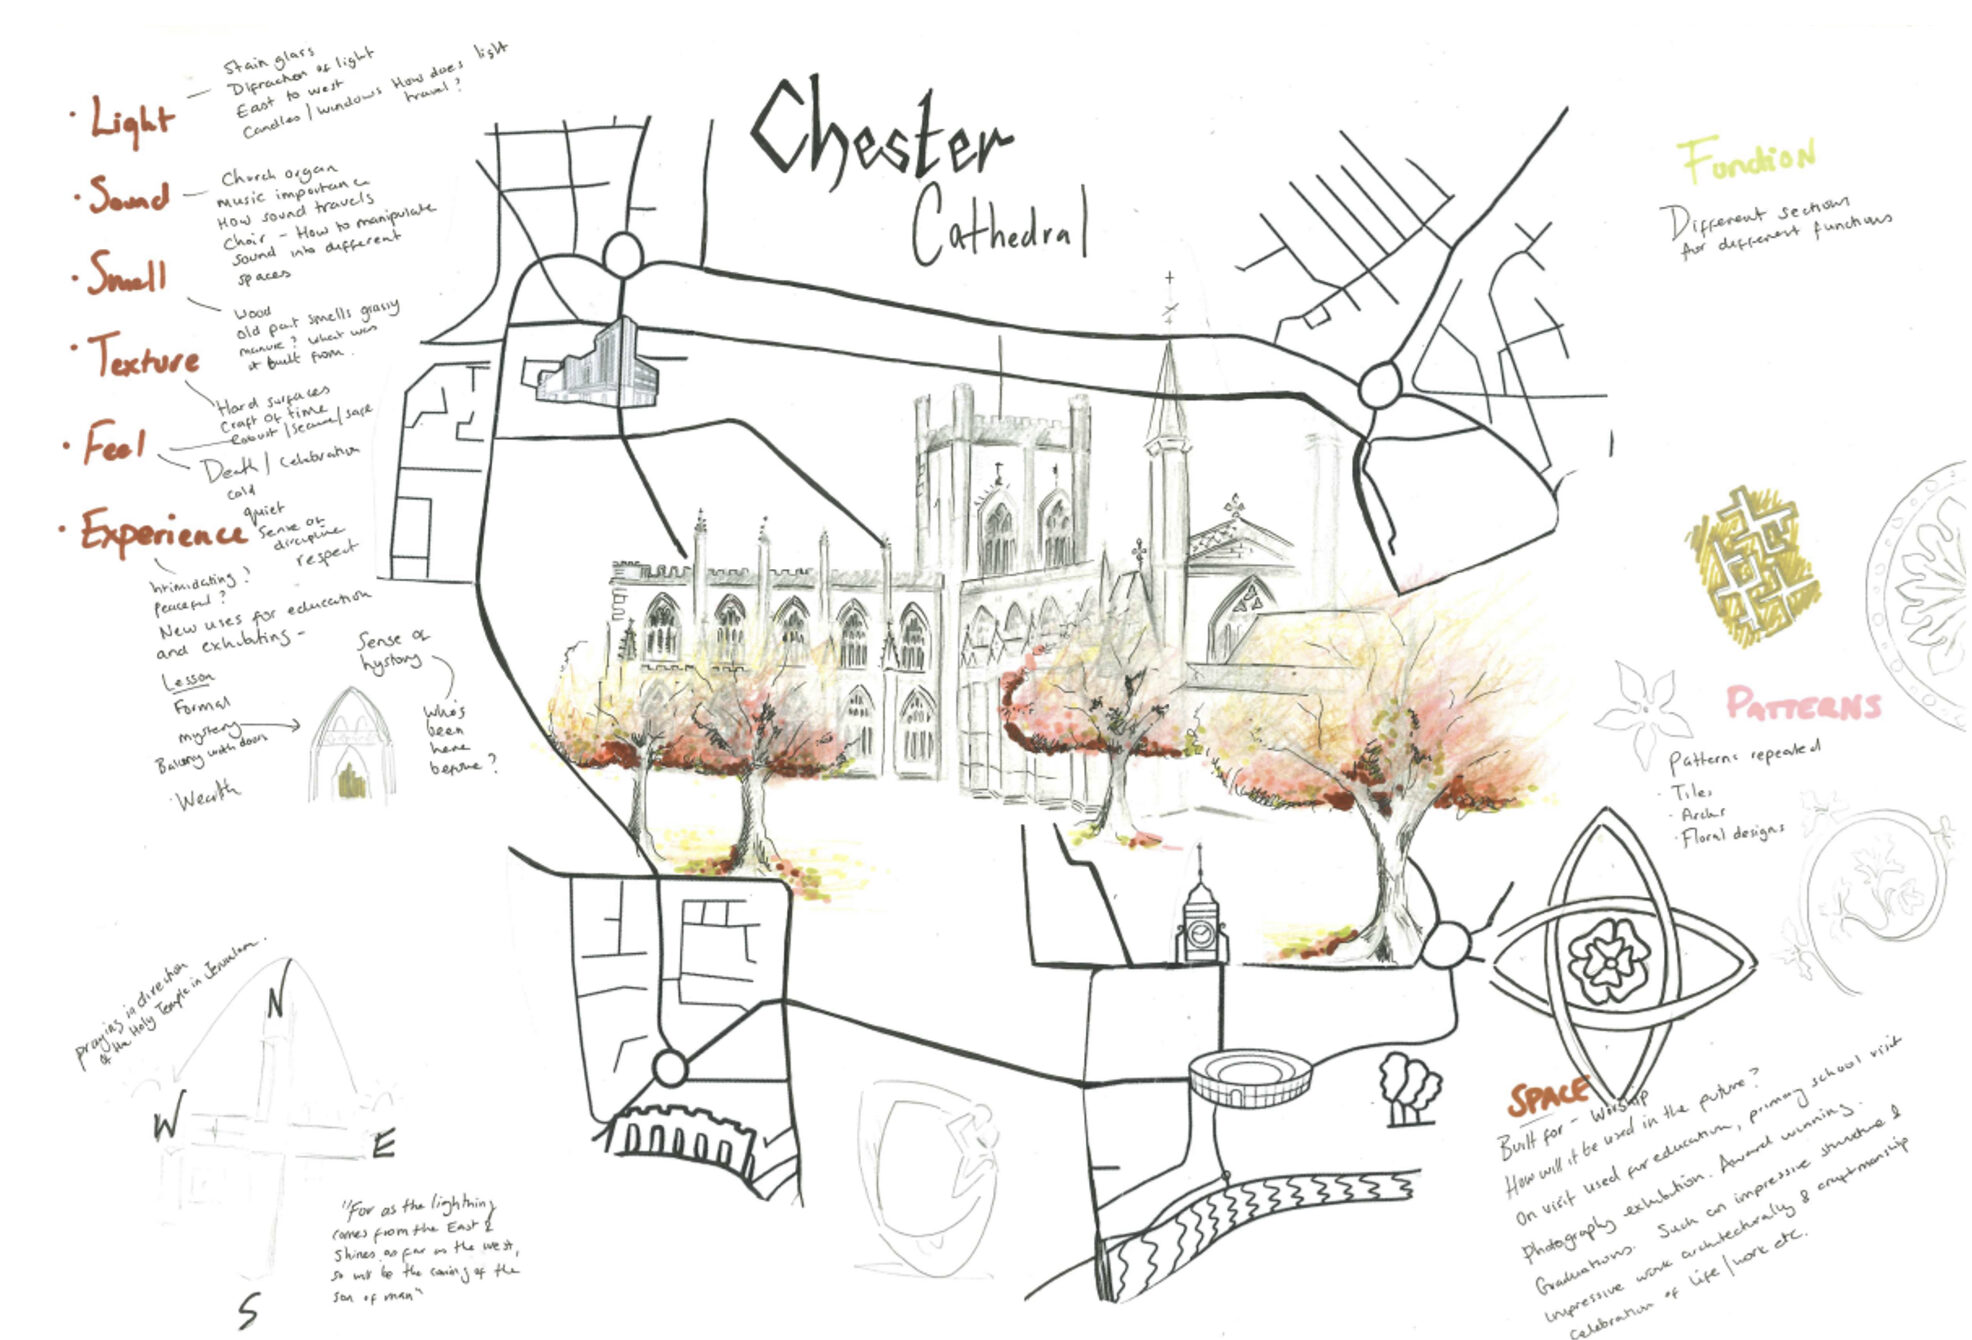 Chester
Cathedral
· Light
Stain glass
Difraction of light
East to west
Candles / windows How does light
travel?
· Sound
Church organ
Music importance
How sound travels
Choir - How to manipulate
sound into different
spaces
· Smell
Wood
old part smells grassy
manure? what was
it built from.
· Texture
Hard surfaces
Craft of time
Robust / secure / safe
· Feel
Death / celebration
cold
quiet
Sense of
discipline
respect
· Experience
Intimidating?
Peaceful?
New uses for education
and exhibiting -
Lesson
Formal
mystery
Balcony with doors
· Wealth
Sense of
hystory
Who's
been
here
before?
praying in direction
of the Holy Temple in Jerusalem.
N
W
E
S
"For as the lightning
comes from the East &
Shines as far as the west,
so will be the coming of the
son of man"
Function
Different sections
for different functions
PATTERNS
Patterns repeated
· Tiles
· Archs
· Floral designs
SPACE
Built for - Worship
How will it be used in the future?
On visit used for education, primary school visit
Photography exhibition. Award winning.
Graduations. Such an impressive structure &
impressive work architecturally & craftmanship
Celebration of life / work etc.